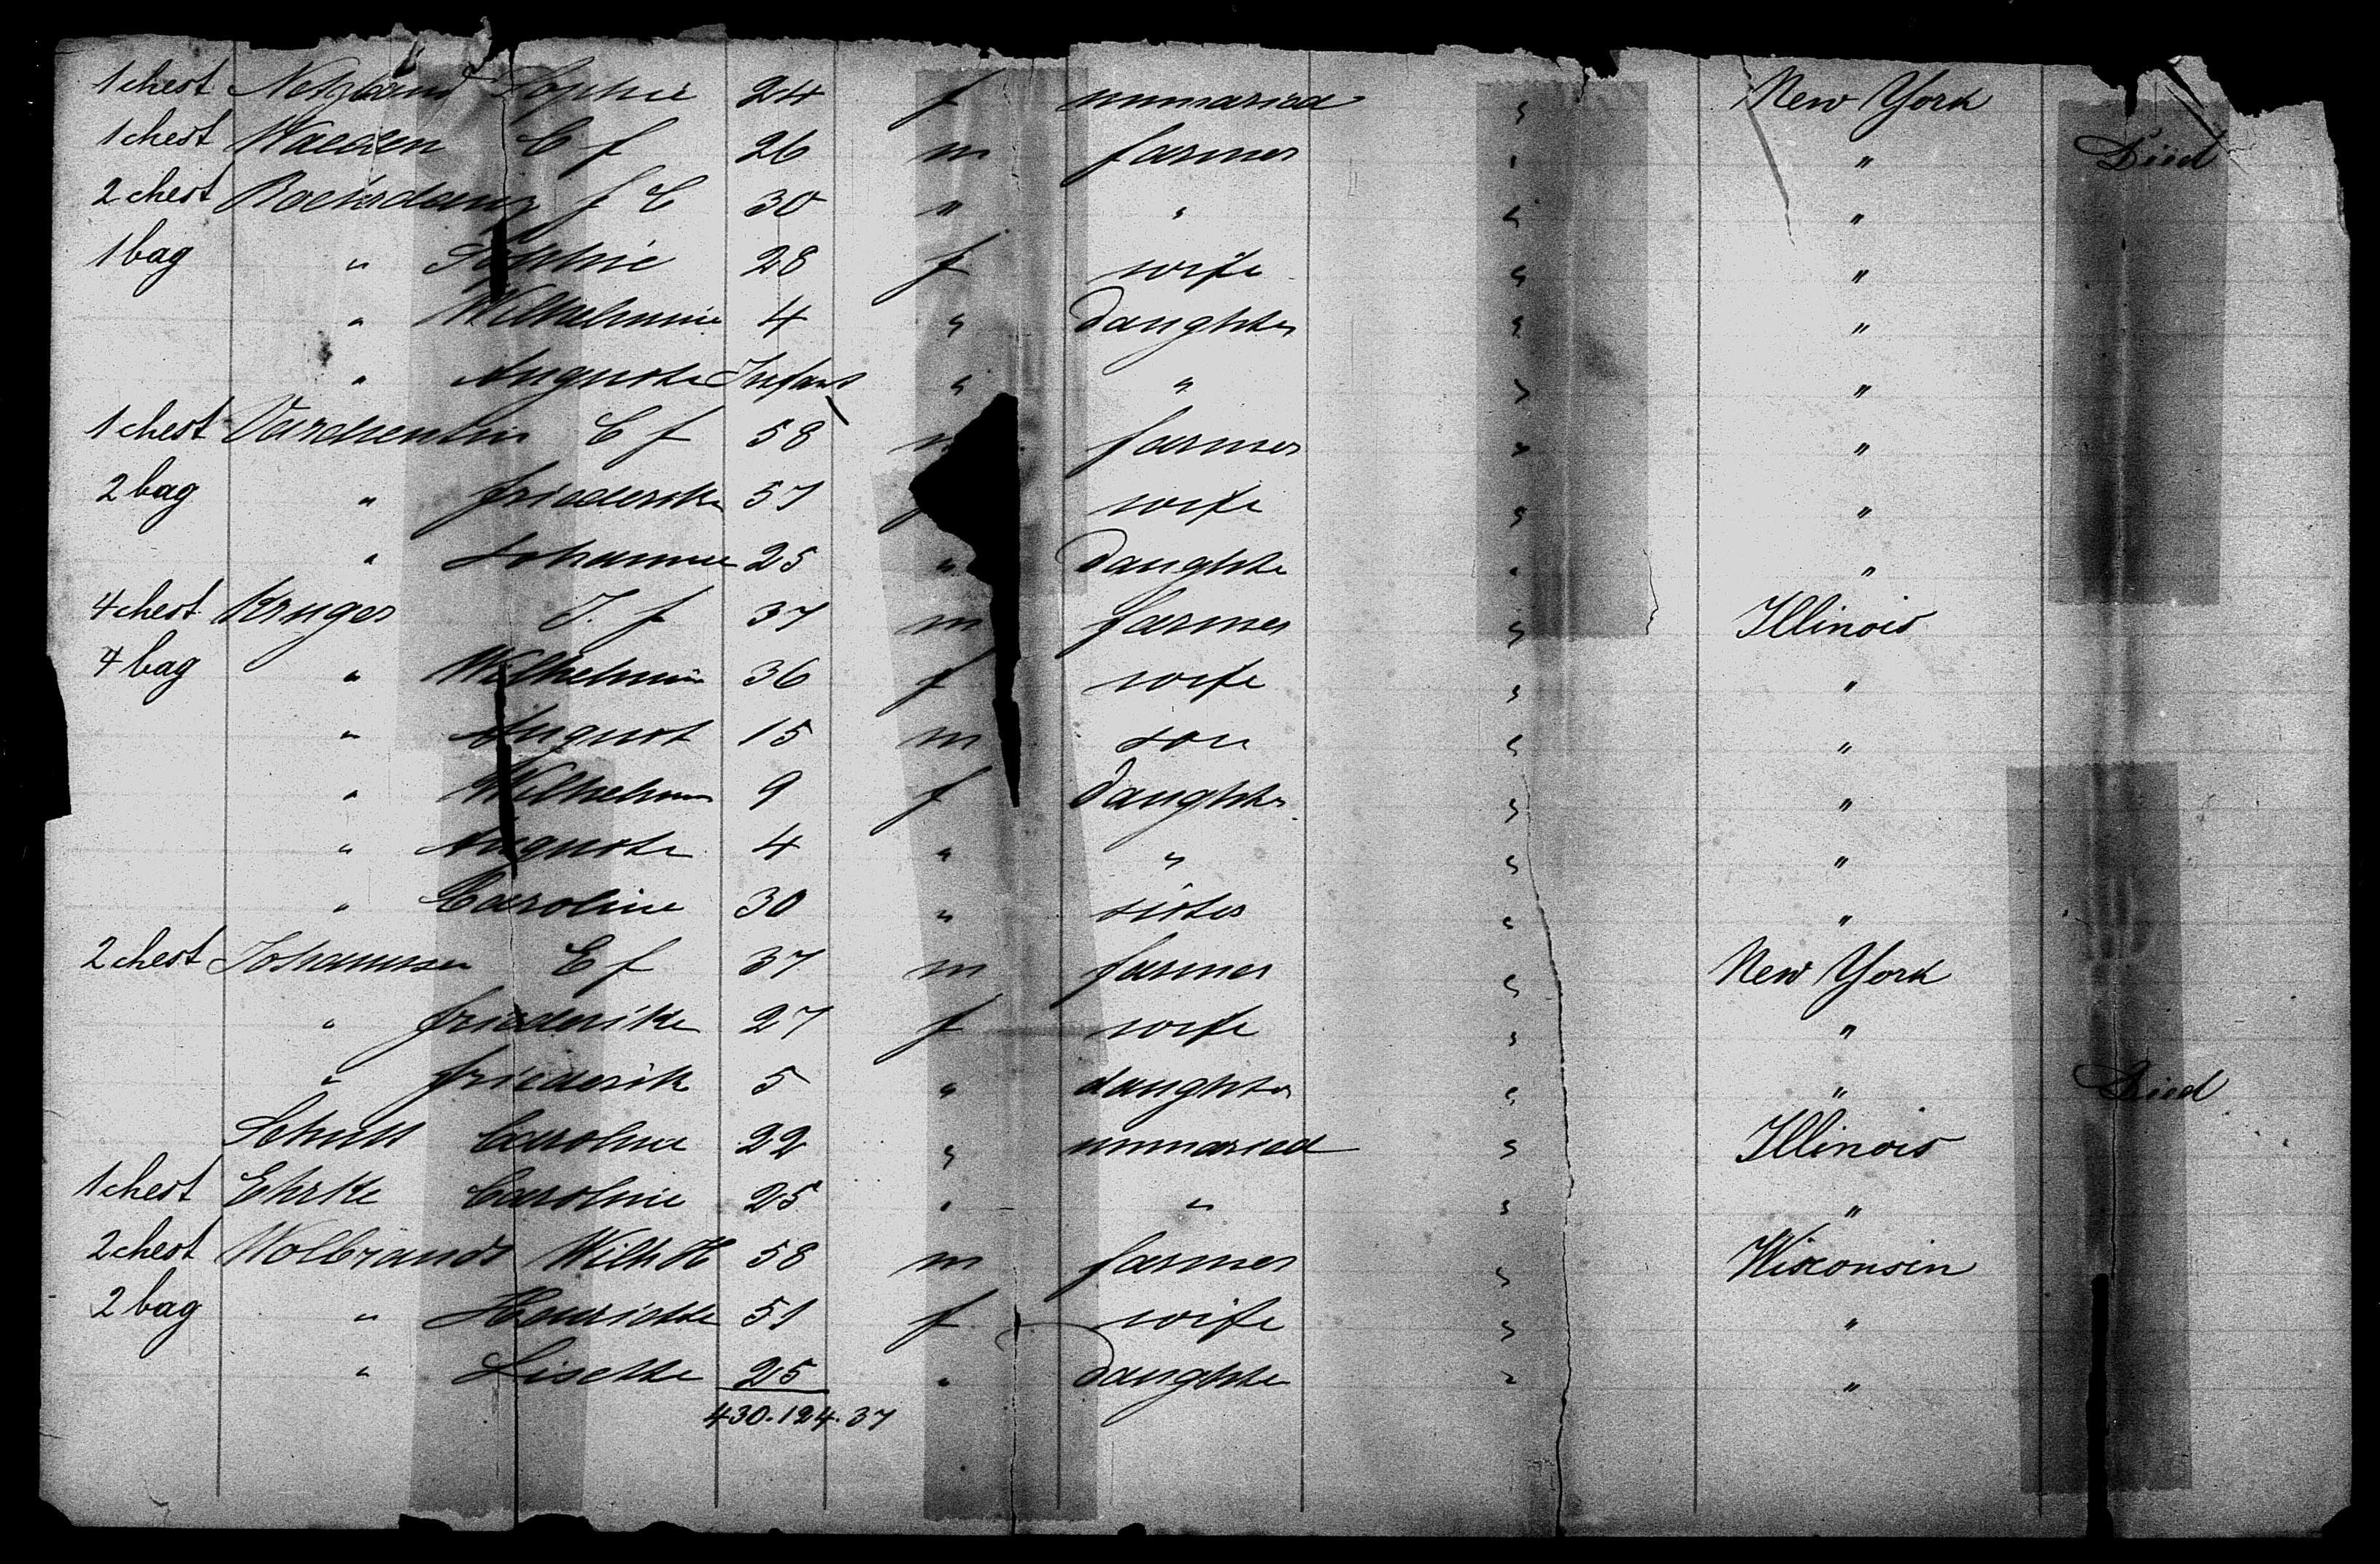 1 chest Sophie 24 f unmaried " New York
1 chest Walden C f 26 m farmer " " Died
2 chest f C 30 " " " "
1 bag " Sophie 28 f wife " "
" Wilhelmine 4 " Daughter " "
" Auguste Infant " " " "
1 chest Vardientin C f 58 m farmer " "
2 bag " friederike 57 f wife " "
" Johanne 25 " Daughte " "
4 chest Kruger J. f 37 m farmer " Illinois
4 bag " Wilhelmin 36 f wife " "
" August 15 m son " "
" Wilhelm 9 f Daughter " "
" Auguste 4 " " " "
" Caroline 30 " sister " "
2 chest Johannsen E f 37 m farmer " New York
" friederike 27 f wife " "
" friederik 5 " daughter " " Died
Schult Caroline 22 " unmaried " Illinois
1 chest Ehrke Caroline 25 " " " "
2 chest Wolbrandt Wilh H 58 m farmer " Wisconsin
2 bag " Henriette 51 f wife " "
" Lisette 25 " Daughte " "
430. 124. 37